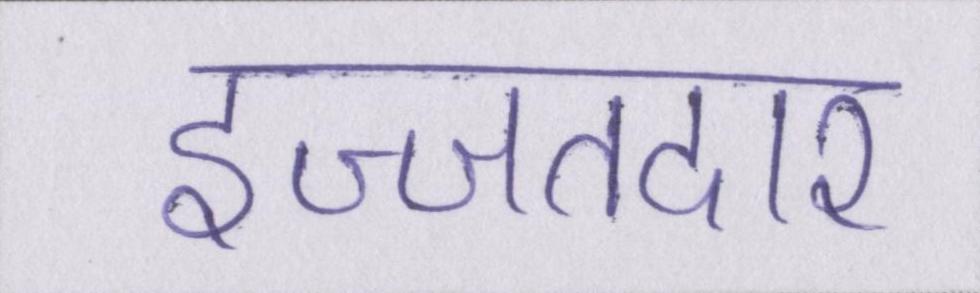 इज्जतदार